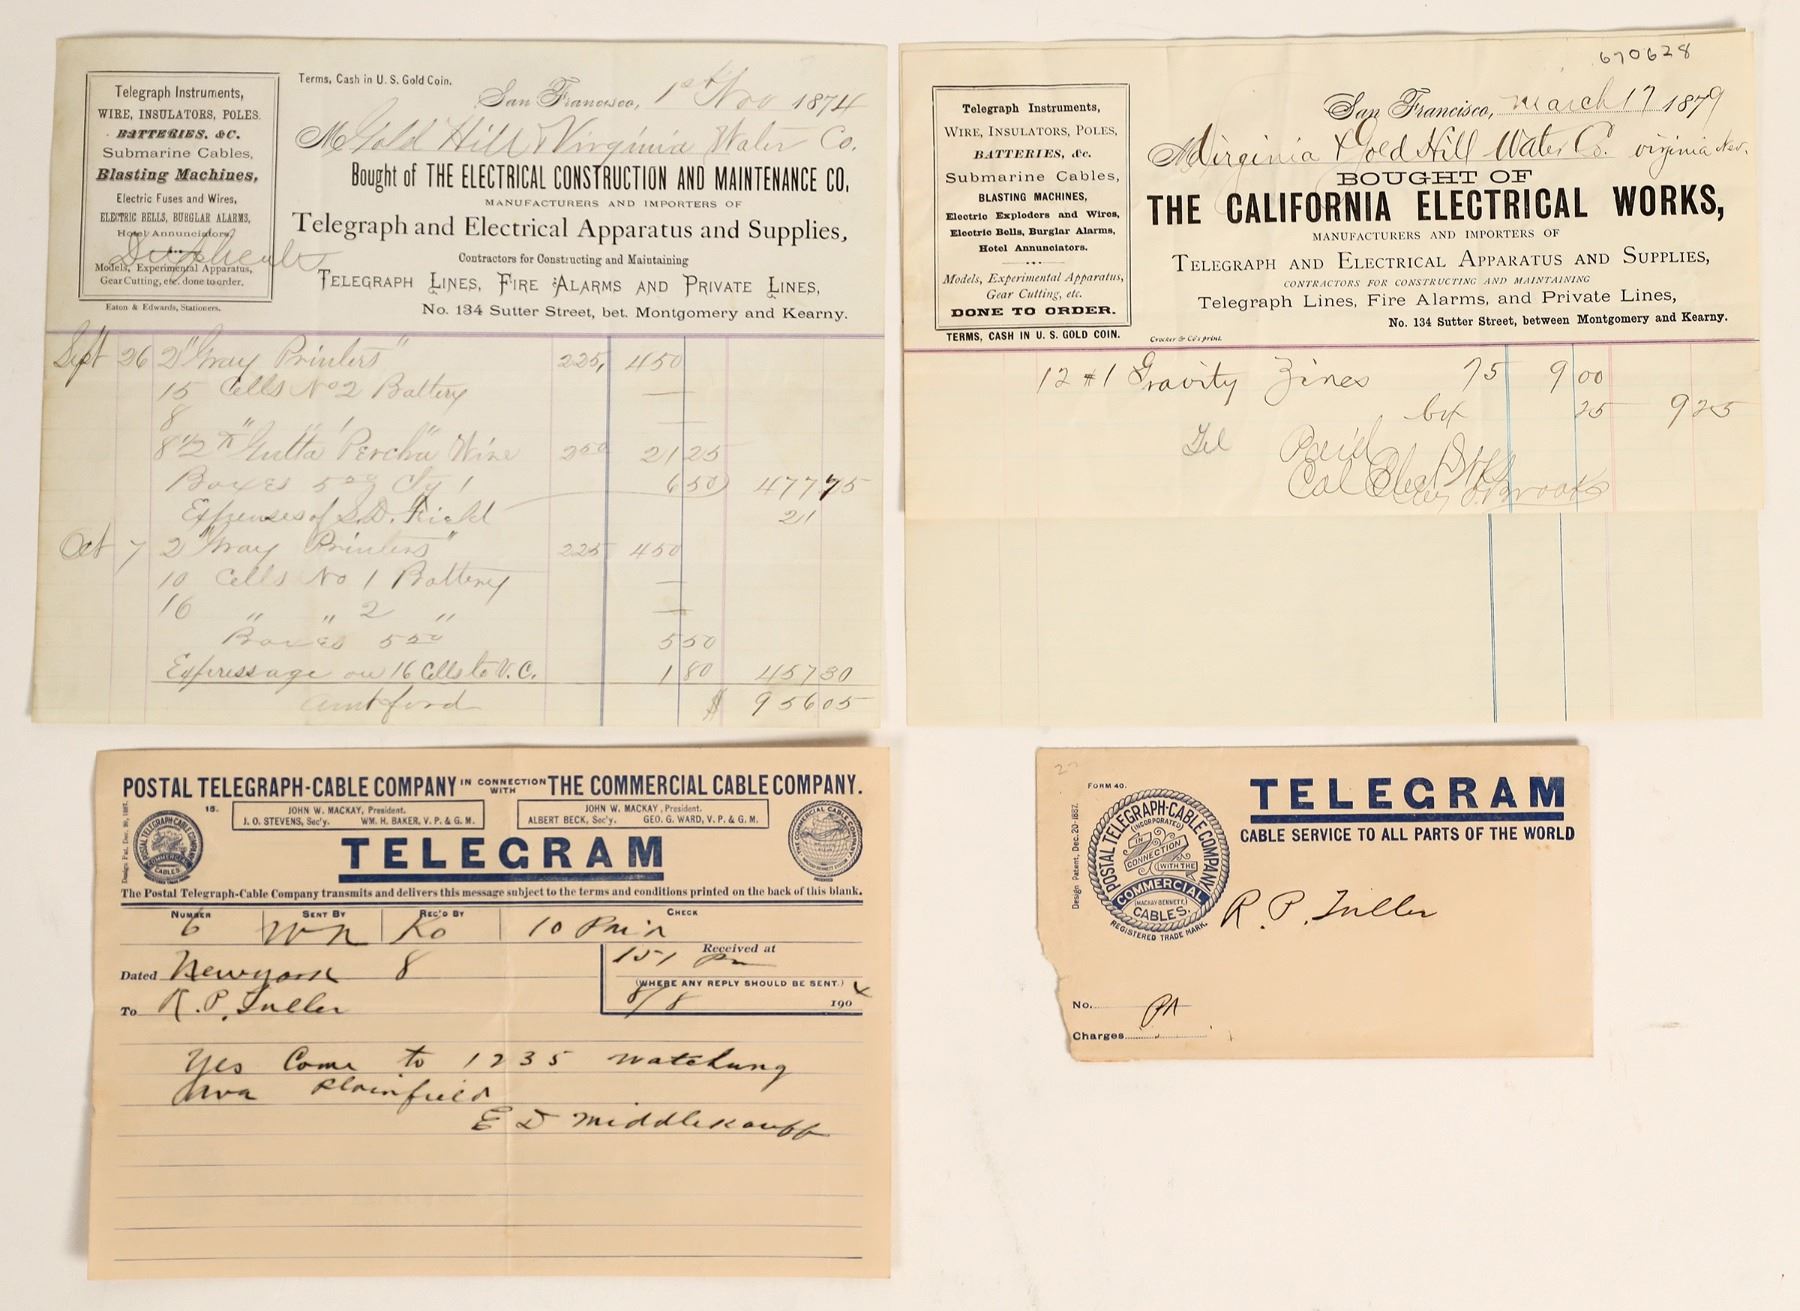 Terms, Cash in U. S. Gold Coin.
San Francisco, 1st Nov 1874
M Gold Hill & Virginia Water Co.
Bought of THE ELECTRICAL CONSTRUCTION AND MAINTENANCE CO.
MANUFACTURERS AND IMPORTERS OF
Telegraph and Electrical Apparatus and Supplies,
Contractors for Constructing and Maintaining
TELEGRAPH LINES, FIRE ALARMS AND PRIVATE LINES,
No. 134 Sutter Street, bet. Montgomery and Kearny.
Telegraph Instruments,
WIRE, INSULATORS, POLES.
BATTERIES, &C.
Submarine Cables,
Blasting Machines,
Electric Fuses and Wires,
ELECTRIC BELLS, BURGLAR ALARMS,
Hotel Annunciators,
Duplicate
Models, Experimental Apparatus,
Gear Cutting, etc. done to order.
Eaton & Edwards, Stationers.
Sept 26 2 "Gray Printers" 225, 450
15 Cells No 2 Battery —
8 " " 1 " —
"Gutta Percha" Wire 250 21 25
Boxes 650 477 75
Expenses of S.D. Field 21
Oct 7 2 "Gray Printers" 225 450
10 Cells No 1 Battery —
16 " " 2 " —
Boxes 550 5 50
Expressage on 16 Cells to V.C. 1 80 457 30
Amt ford $ 956 05
670628
San Francisco, March 17 1879
M Virginia & Gold Hill Water Co. Virginia Nev.
BOUGHT OF
THE CALIFORNIA ELECTRICAL WORKS,
MANUFACTURERS AND IMPORTERS OF
TELEGRAPH AND ELECTRICAL APPARATUS AND SUPPLIES,
CONTRACTORS FOR CONSTRUCTING AND MAINTAINING
Telegraph Lines, Fire Alarms, and Private Lines,
No. 134 Sutter Street, between Montgomery and Kearny.
Telegraph Instruments,
WIRE, INSULATORS, POLES,
BATTERIES, &c.
Submarine Cables,
BLASTING MACHINES,
Electric Exploders and Wires,
Electric Bells, Burglar Alarms,
Hotel Annunciators.
Models, Experimental Apparatus,
Gear Cutting, etc.
DONE TO ORDER.
TERMS, CASH IN U. S. GOLD COIN.
Crocker & Co's print.
12 #1 Gravity Zincs 75 9 00
bx 25 9 25
Paid
Cal Elec Wks
POSTAL TELEGRAPH-CABLE COMPANY IN CONNECTION WITH THE COMMERCIAL CABLE COMPANY.
15.
JOHN W. MACKAY, President.
J. O. STEVENS, Sec'y. WM. H. BAKER, V. P. & G. M.
JOHN W. MACKAY, President.
ALBERT BECK, Sec'y. GEO. G. WARD, V. P. & G. M.
POSTAL TELEGRAPH-CABLE COMPANY
COMMERCIAL
CABLES.
TELEGRAM
The Postal Telegraph-Cable Company transmits and delivers this message subject to the terms and conditions printed on the back of this blank.
NUMBER SENT BY REC'D BY CHECK
6 Ko 10 Paid
Received at
151 Pm
(WHERE ANY REPLY SHOULD BE SENT.)
8/8 1904
Dated Newyork 8
To R. P. Fuller
Yes Come to 1235 Watchung
Ava Plainfield
E D Middlekauff
FORM 40.
TELEGRAM
CABLE SERVICE TO ALL PARTS OF THE WORLD
Design Patent, Dec. 20-1887.
POSTAL TELEGRAPH-CABLE COMPANY
(INCORPORATED)
IN CONNECTION WITH THE
COMMERCIAL
(MACKAY-BENNETT)
CABLES.
REGISTERED TRADE MARK.
R. P. Fuller
No. Pd
Charges